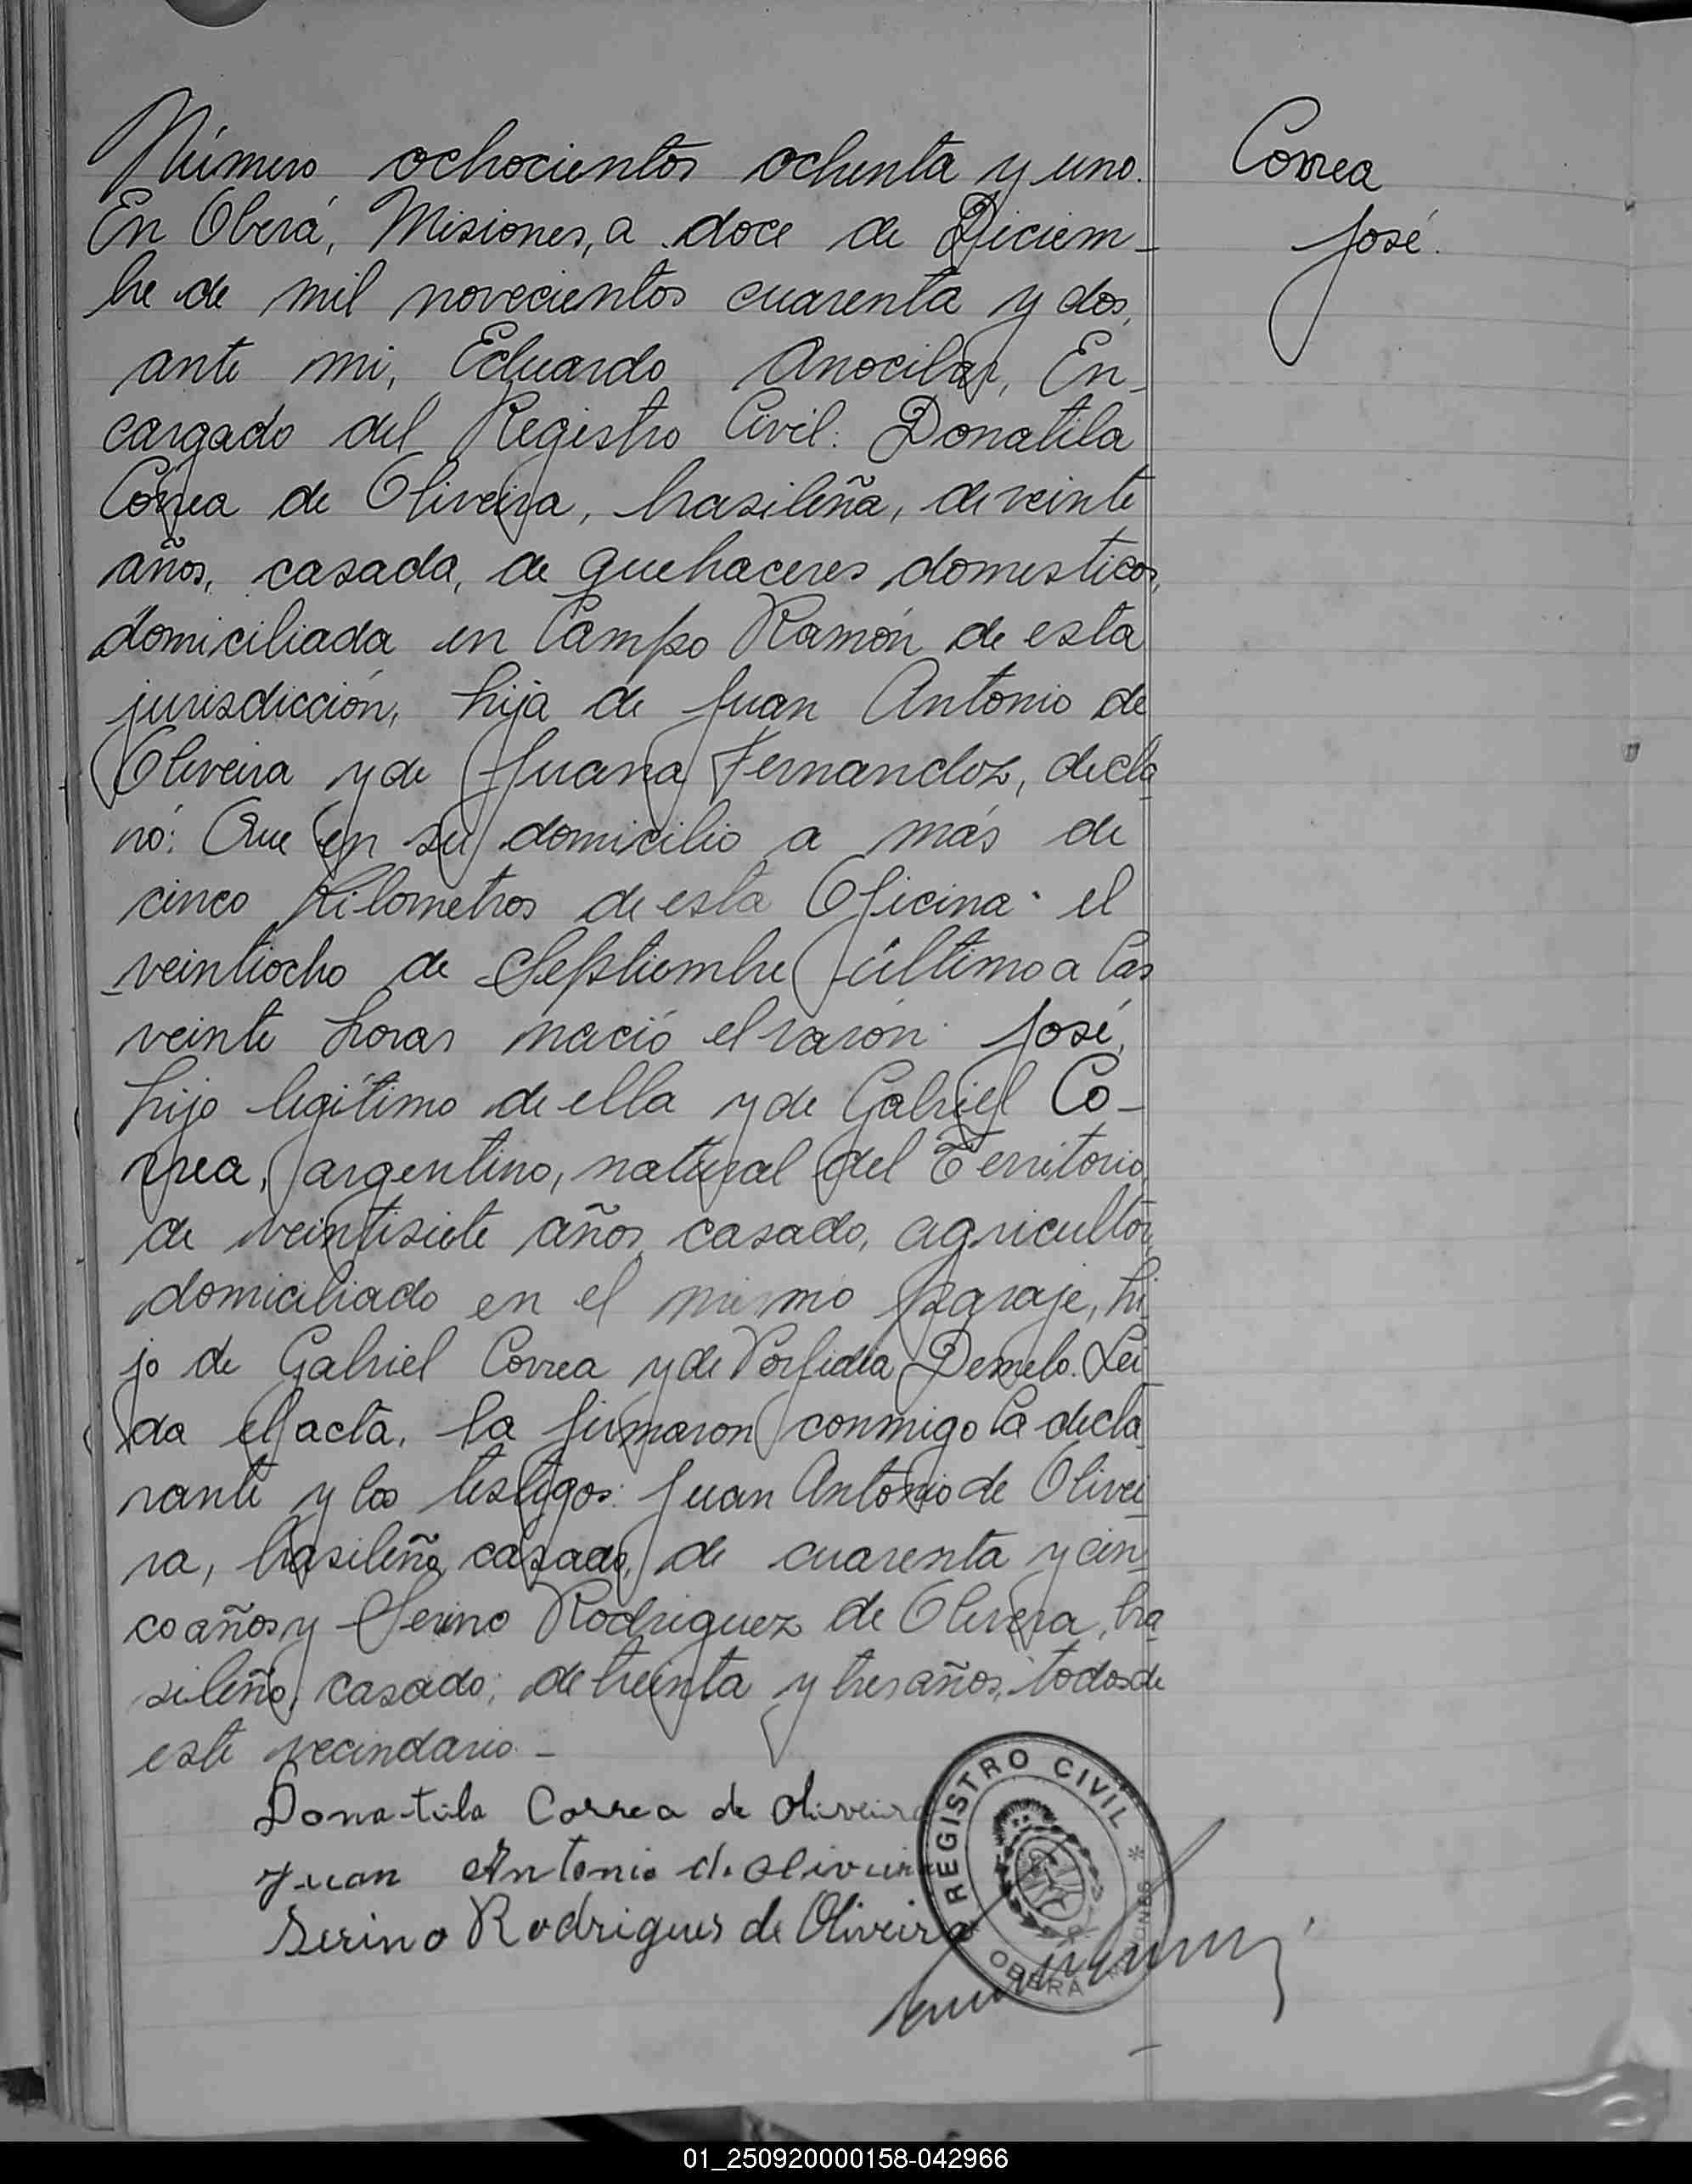 Número ochocientos ochenta y uno.
En Oberá, Misiones, a doce de Diciem-
bre de mil novecientos cuarenta y dos,
ante mi, Eduardo Anocibar, En-
cargado del Registro Civil: Donatila
Correa de Oliveira, brasileña, de veinte
años, casada, de quehaceres domesticos,
domiciliada en Campo Ramón de esta
jurisdicción, hija de Juan Antonio de
Oliveira y de Juana Fernandez, decla
ró: Que en su domicilio a más de
cinco kilometros de esta Oficina el
veintiocho de Septiembre último a las
veinte horas nació el varón José,
hijo legítimo de ella y de Gabriel Co-
rrea, argentino, natural del Territorio,
de veintisiete años, casado, agricultor,
domiciliado en el mismo paraje, hi
jo de Gabriel Correa y de Porfidia Demelo. Lei
da el acta, la firmaron conmigo la decla
rante y los testigos: Juan Antonio de Olivei
ra, brasileño, casado, de cuarenta y cin
co años y Serino Rodriguez de Olivera, bra
sileño, casado, de treinta y tres años, todos de
este vecindario.-
Correa
José.
Donatila Correa de Oliveira
Juan Antonio de Oliveira
Serino Rodrigues de Oliveira
REGISTRO CIVIL *
OBERA MISIONES
01_250920000158-042966